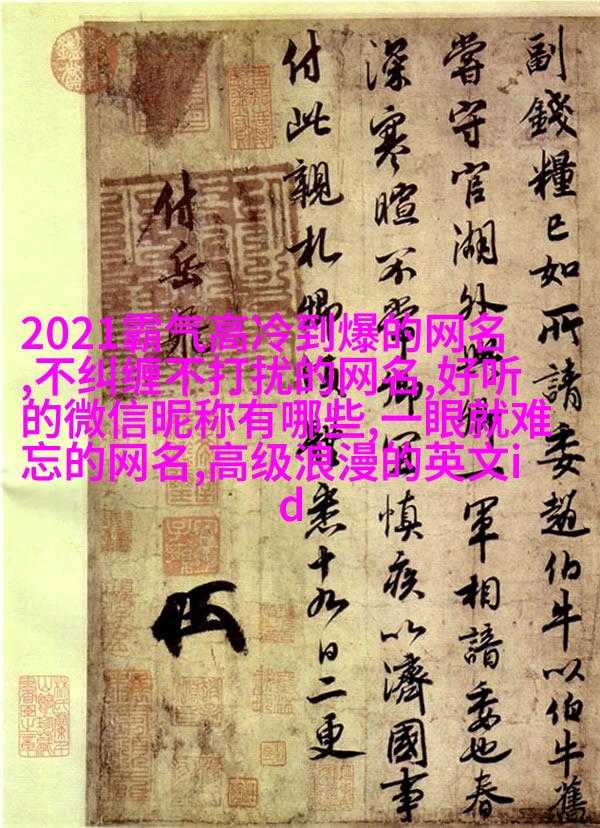 2021霸气高冷到爆的网名
,不纠缠不打扰的网名,好听
的微信昵称有哪些,一眼就难
忘的网名,高级浪漫的英文i
d
副錢糧已如所請委趙伯牛以伯牛舊
嘗守官湖外與卿一軍相諳委也春
深寒暄不常卿宜慎疾以濟國事
付此親札卿須體悉十九日二更
付岳飛